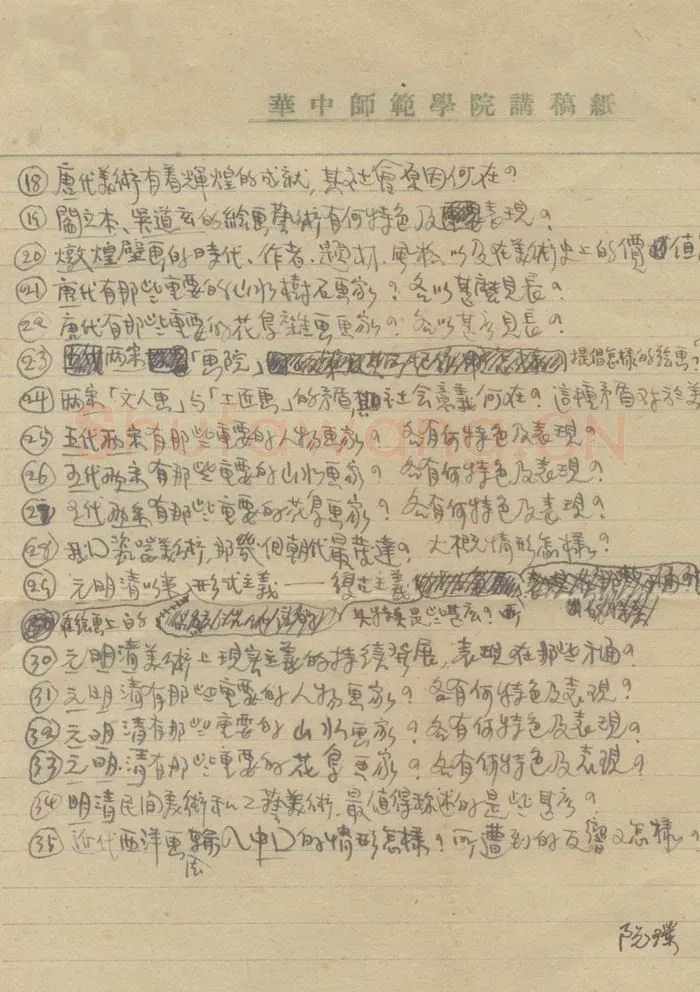 華中師範學院講稿紙
⑱ 唐代美術有着輝煌的成就,其社會原因何在?
⑲ 閻立本、吳道玄的繪画藝術有何特色及表現?
⑳ 燉煌壁画的時代、作者、題材、風格、以及在美術史上的價值
㉑ 唐代有那些重要的山水樹石画家?各以甚麽見長?
㉒ 唐代有那些重要的花鳥雜画画家?各以甚么見長?
㉓ 两宋「画院」提倡怎樣的绘画?
㉔ 两宋「文人画」与「工匠画」的矛盾其社会意義何在?這種矛盾对於美
㉕ 五代两宋有那些重要的人物画家?各有何特色及表現?
㉖ 五代两宋有那些重要的山水画家?各有何特色及表現?
㉗ 五代两宋有那些重要的花鳥画家?各有何特色及表現?
㉘ 我囗瓷器美術,那幾個朝代最茂達?大概情形怎樣?
㉙ 元明清以来,形式主義——復古主義
在绘画上的 其特矣是些甚么?
㉚ 元明清美術上現实主義的持续發展,表現在那些方面?
㉛ 元明清有那些重要的人物画家?各有何特色及表現?
㉜ 元明清有那些重要的山水画家?各有何特色及表現?
㉝ 元明清有那些重要的花鳥画家?各有何特色及表現?
㉞ 明清民间美術和工藝美術,最值得称述的是些甚么?
㉟ 近代西洋画輸入中囗的情形怎樣?所遭到的反響又怎樣?
阮璞
shufawang.CN